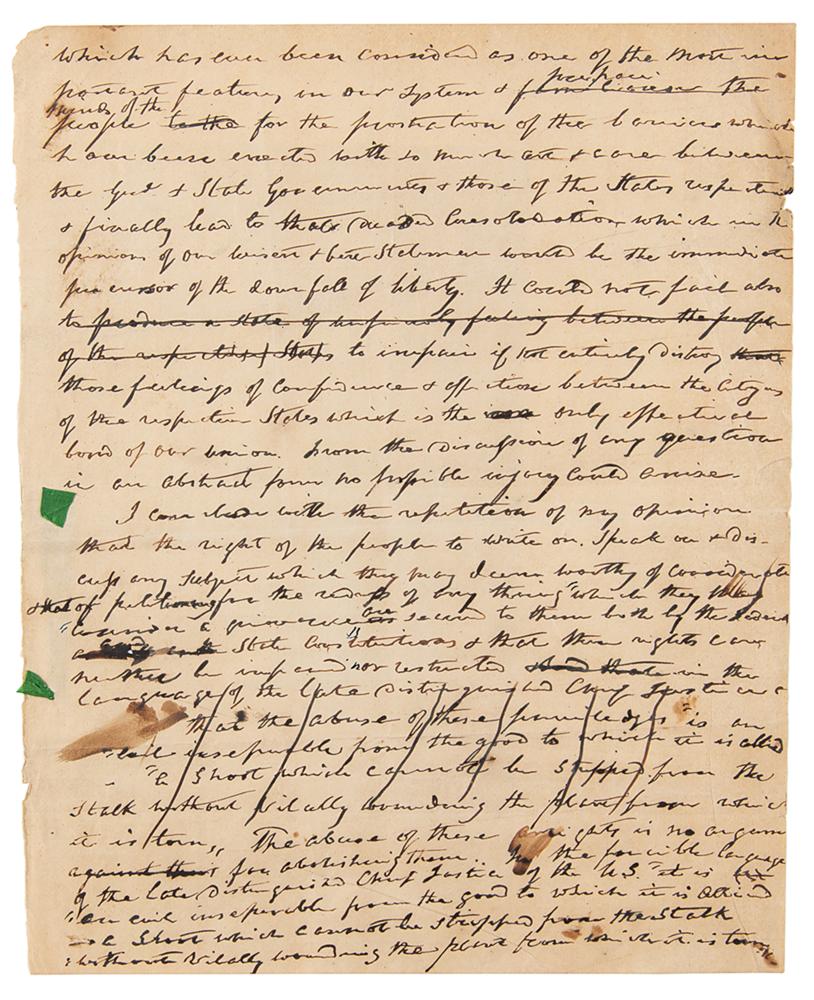 which has ever been considered as one of the most im
portant features in our System & prepare
familiarise the
minds of the
people to the for the prostration of the barriers which
have been erected with so much art & care between
the Genl & State Governments & those of the States respectively
& finally lead to that dreaded Consolidation which in the
opinions of our wisest & best Statesmen would be the immediate
precursor of the downfall of liberty. It could not fail also
to produce a state of unfriendly feeling between the people
of the respective States to impair if not entirely distroy
those feelings of Confidence & affection between the Citizens
of the respective States which is the only effectual
bond of our Union. From the Discussion of any question
in an abstract form no possible injury could arise.
I conclude with the repetition of my opinion
that the right of the people to write on, Speak on & dis-
cuss any subject which they may deem worthy of consideration
& that of petitioning for the redress of any thing "which they may
"consider a grievance are secured to them both by the Federal
and State Constitutions & that these rights can
neither be impaired nor restricted in the
language of the late distinguished Chief Justice
that the abuse of these priviledges "is an
"evil inseparable from the good to which it is allied
"a Shoot which cannot be stripped from the
Stalk without vitally wounding the plant from which
it is torn," The abuse of these rights is no argum
against their for abolishing them. In the forcible language
of the late Distinguished Chief Justice of the U.S. "it is
"an evil inseparable from the good to which it is allied
"a Shoot which cannot be stripped from the Stalk
"without vitally wounding the plant from which it is torn